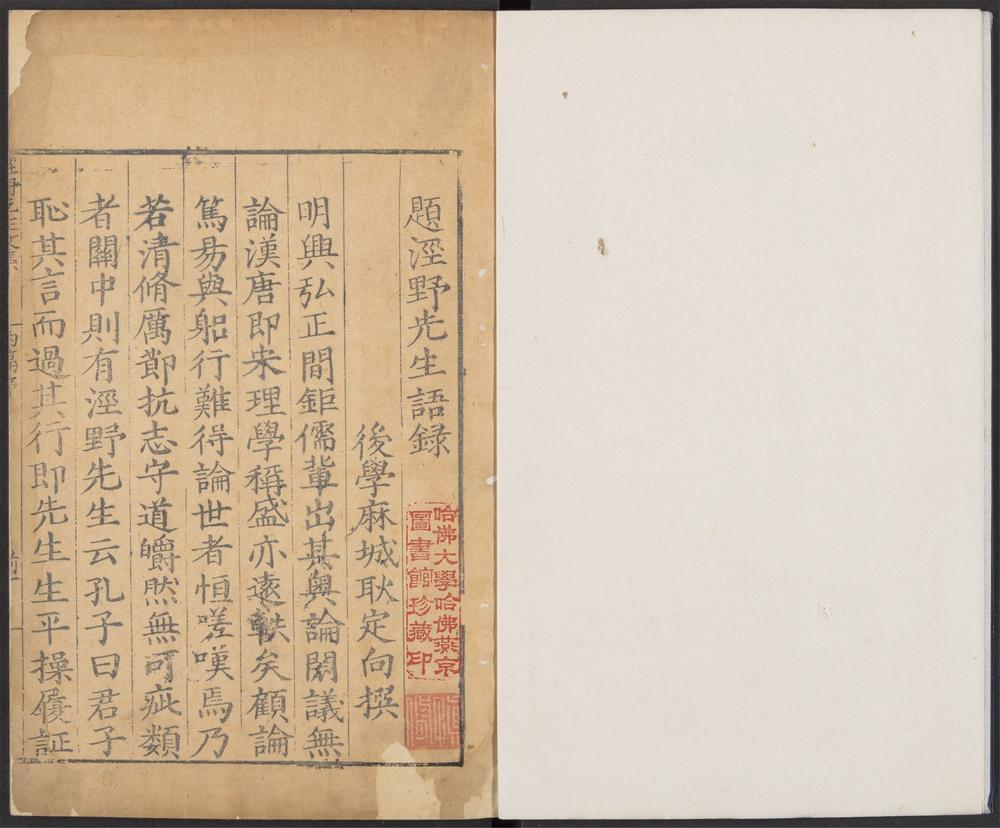 題涇野先生語録
後學麻城耿定向撰
明興弘正間鉅儒輩出其奧論閎議無
論漢唐即宋理學稱盛亦遠軼矣顧論
篤易與躬行難得論世者恒嗟嘆焉乃
若清脩厲節抗志守道皭然無可疵類
者關中則有涇野先生云孔子曰君子
恥其言而過其行即先生生平操履証
哈佛大學哈佛燕京
圖書館珍藏印